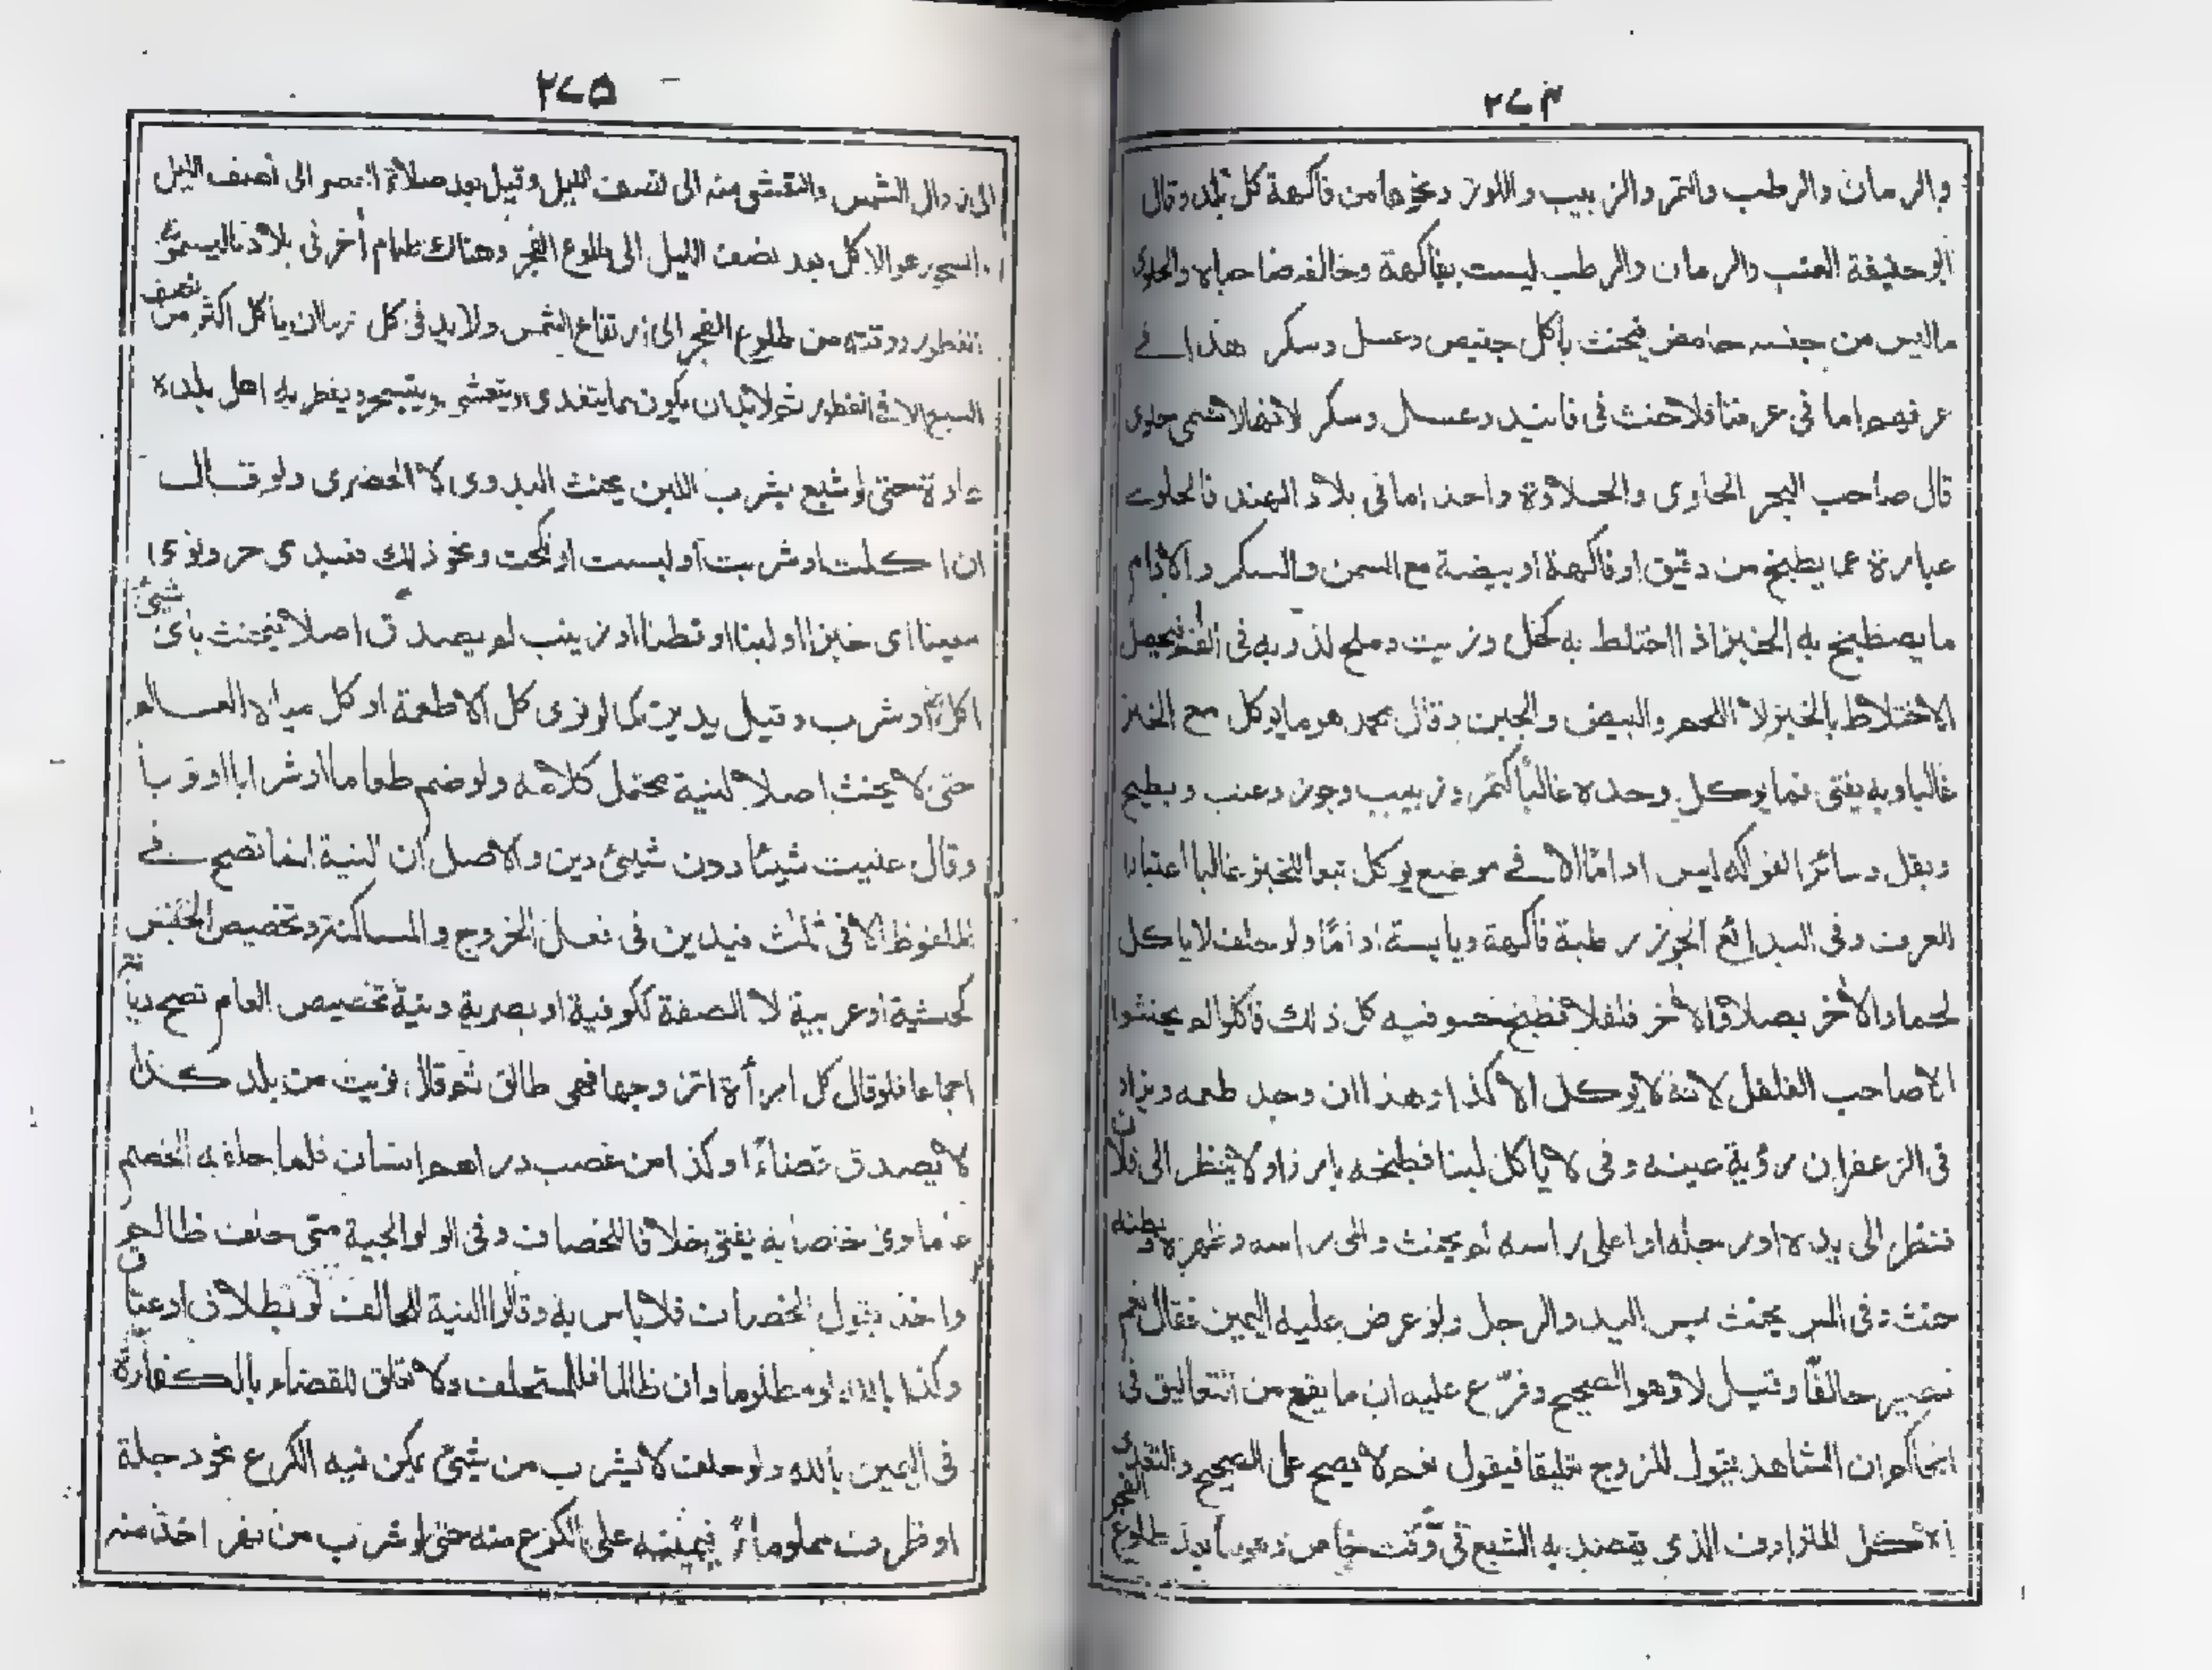 ٢٧٤
والرمان والرطب والتمر والزبيب واللوز ونحوها من فاكهة كل بلد وقال
ابو حنيفة العنب والرمان والرطب ليست بفاكهة وخالفه صاحباه والحلوى
ماليس من جنسه حامض فيحنث بأكل خبيص وعسل وسكر هذا في
عرفهم اما في عرفنا فلا حنث في فانيد وعسل وسكر لانها لا تسمى حلوى
قال صاحب البحر الحاوى والحلاوة واحد اما في بلاد الهند فالحلوى
عبارة عما يطبخ من دقيق او فاكهة او بيضة مع السمن والسكر والادام
ما يصطبغ به الخبز اذا اختلط به كخل وزيت وملح لذوبه في الفم فيحصل
الاختلاط بالخبز لا اللحم والبيض والجبن وقال محمد هو ما يوكل مع الخبز
غالبا وبه يفتى فما يوكل وحده غالباً كتمر وزبيب وجوز وعنب وبطيخ
وبقل وسائر الفواكه ليس اداماً الا في موضع يوكل تبعا للخبز غالبا اعتبارا
للعرف وفي البدائع الجوز رطبة فاكهة ويابسة اداماً ولو حلف لا ياكل
لحما والآخر بصلا والآخر فلفلا فطبخ حسو فيه كل ذلك فاكلوا لم يحنثوا
الا صاحب الفلفل لانه لا يوكل الا كذا وهذا ان وجد طعمه ويزاد
في الزعفران رؤية عينه وفي لا ياكل لبنا فطبخه بارز او لا ينظر الى فلان
فنظر الى يده او رجله او اعلى راسه لم يحنث والى راسه وظهره وبطنه
حنث وفي المس يحنث بمس اليد والرجل ولو عرض عليه اليمين فقال نعم
يصير حالفاً وقيل لا وهو الصحيح وفرّع عليه ان ما يقع من التعاليق في
المحاكم ان الشاهد يقول للزوج تعليقا فيقول نعم لا يصح على الصحيح والتغدى
الاكل المترادف الذى يقصد به الشبع في وقت خاص وهو ما بعد طلوع الفجر
٢٧٥
الى زوال الشمس والتعشى منه الى نصف الليل وقيل بعد صلاة العصر الى نصف الليل
والسحور هو الاكل بعد نصف الليل الى طلوع الفجر وهناك طعام أخر في بلادنا ليسمى
الفطور ووقته من طلوع الفجر الى ارتفاع الشمس ولابد في كل زمان ياكل اكثر من نصف
الشبع الا في الفطور ثم لابد ان يكون مما يتغدى ويتعشى ويتسحر ويفطر به اهل بلده
عادة حتى لو شبع بشرب اللبن يحنث البدوى لا الحضرى ولو قال
ان اكلت او شربت او لبست او نكحت ونحو ذلك فعبدى حر ونوى
معينا اى خبزا او لبنا او قطنا او زينب لم يصدق اصلا فيحنث باى شيئ
اكل او شرب وقيل يدين كما لو نوى كل الاطعمة او كل مياه العالم
حتى لا يحنث اصلا لنية محتمل كلامه ولو ضم طعاما او شرابا او ثوبا
وقال عنيت شيئا دون شيئ دين والاصل ان النية انما تصح في
الملفوظ الا في ثلث فيدين في فعل الخروج والمساكنة وتخصيص الجنس
كحبشية او عربية لا الصفة ككوفية او بصرية ونية تخصيص العام تصح ديانة
اجماعا فلو قال كل امرأة اتزوجها فهى طالق ثم قال نويت من بلد كذا
لا يصدق قضاءً وكذا من غصب دراهم انسان فلما حلفه الخصم
عاما نوى خاصا به يفتى خلافا للخصاف وفي الولوالجية متى حلف ظالم
واخذ بقول الخصاف فلا باس به وقالوا النية للحالف لو بطلاق او عتاق
وكذا بالله لو مظلوما وان ظالما فللمستحلف ولا تعلق للقضاء بالكفارة
في اليمين بالله ولو حلف لا يشرب من شيئ يمكن فيه الكرع نحو دجلة
او ظرف مملو ماءً فيمينه على الكرع منه حتى لو شرب من نهر اخذ منه